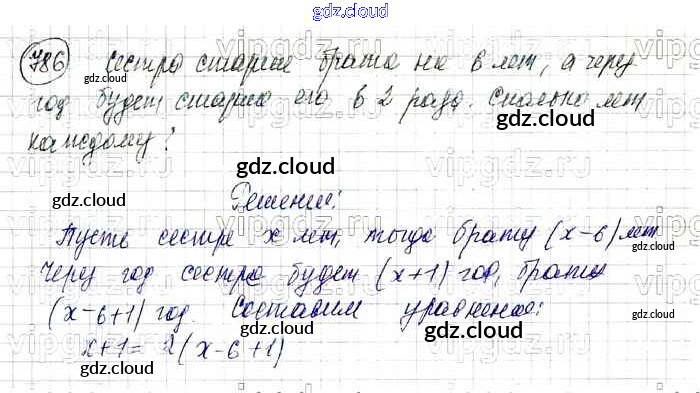 gdz.cloud
786 Сестра старше брата на 6 лет, а через
год будет старше его в 2 раза. Сколько лет
каждому?
gdz.cloud
gdz.cloud
gdz.cloud
Решение:
Пусть сестре x лет, тогда брату (x-6) лет
gdz.cloud
gdz.cloud
Через год сестре будет (x+1) год, брату
(x-6+1) год. Составим уравнение:
gdz.cloud
gdz.cloud
gdz.cloud
gdz.cloud
x+1=2(x-6+1)